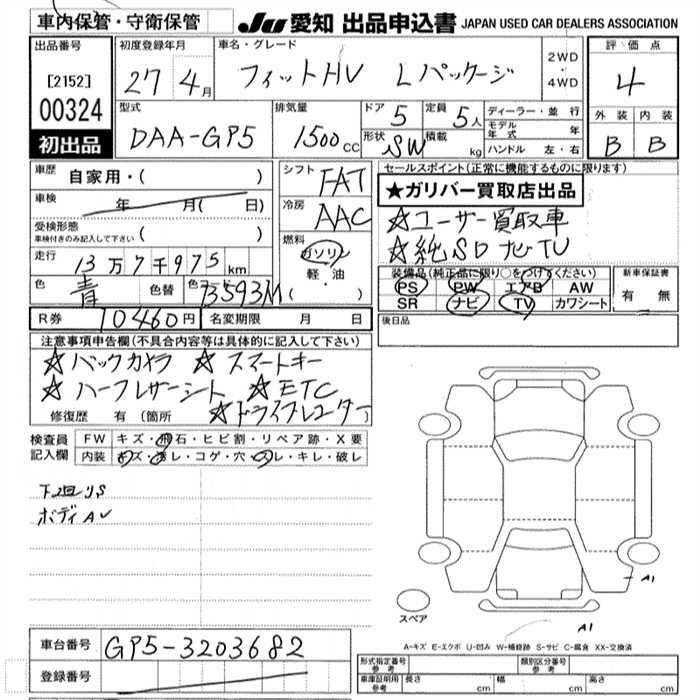 車内保管・守衛保管
JU 愛知 出品申込書 JAPAN USED CAR DEALERS ASSOCIATION
出品番号
[2152]
00324
初出品
初度登録年月
27 4月
車名・グレード
フィットHV Lパッケージ
2WD
・
4WD
評価点
4
外装 内装
B B
型式
DAA-GP5
排気量
1500cc
ドア 5
定員 5人
形状 SW
積載 kg
ディーラー・並行
モデル年式 年
ハンドル 左・右
車歴 自家用・( )
車検 年 月( 日)
受検形態
車検付きのみ記入して下さい ( )
走行 13万7千975km
色 青 色替 B593M
シフト FAT
冷房 AAC
燃料
ガソリン
軽・油
( )
セールスポイント(正常に機能するものに限ります)
★ガリバー買取店出品
☆ユーザー買取車
☆純SDナビTV
装備品(純正品に限り○をつけてください)
PS PW エアB AW
SR ナビ TV カワシート
新車保証書
有 無
R券 10460円
名変期限 月 日
後日品
注意事項申告欄(不具合内容等は具体的に記入して下さい)
☆バックカメラ ☆スマートキー
☆ハーフレザーシート ☆ETC
☆ドライブレコーダー
修復歴 有(箇所 )
検査員
記入欄
FW キズ・飛石・ヒビ割・リペア跡・X要
内装 キズ・汚レ・コゲ・穴・スレ・キレ・破レ
下回りS
ボディAU
A1
スペア
A1
A-キズ E-エクボ U-凹み W-補修跡 S-サビ C-腐食 XX-交換済
車台番号 GP5-3203682
登録番号
形式指定番号
参考
類別区分番号
参考
車庫証明用
参考
長さ cm 幅 cm 高さ cm